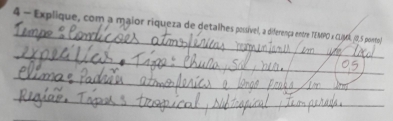 4 – Explique, com a maior riqueza de detalhes possível, a diferença entre TEMPO e CLIMA. (0,5 ponto)
Tempo: Condições atmosféricas momentâneas em um local
específico. Tipos: chuva, sol, neve.
05
Clima: Padrão atmosférico a longo prazo em uma
Região. Tipos: tropical, temperado.